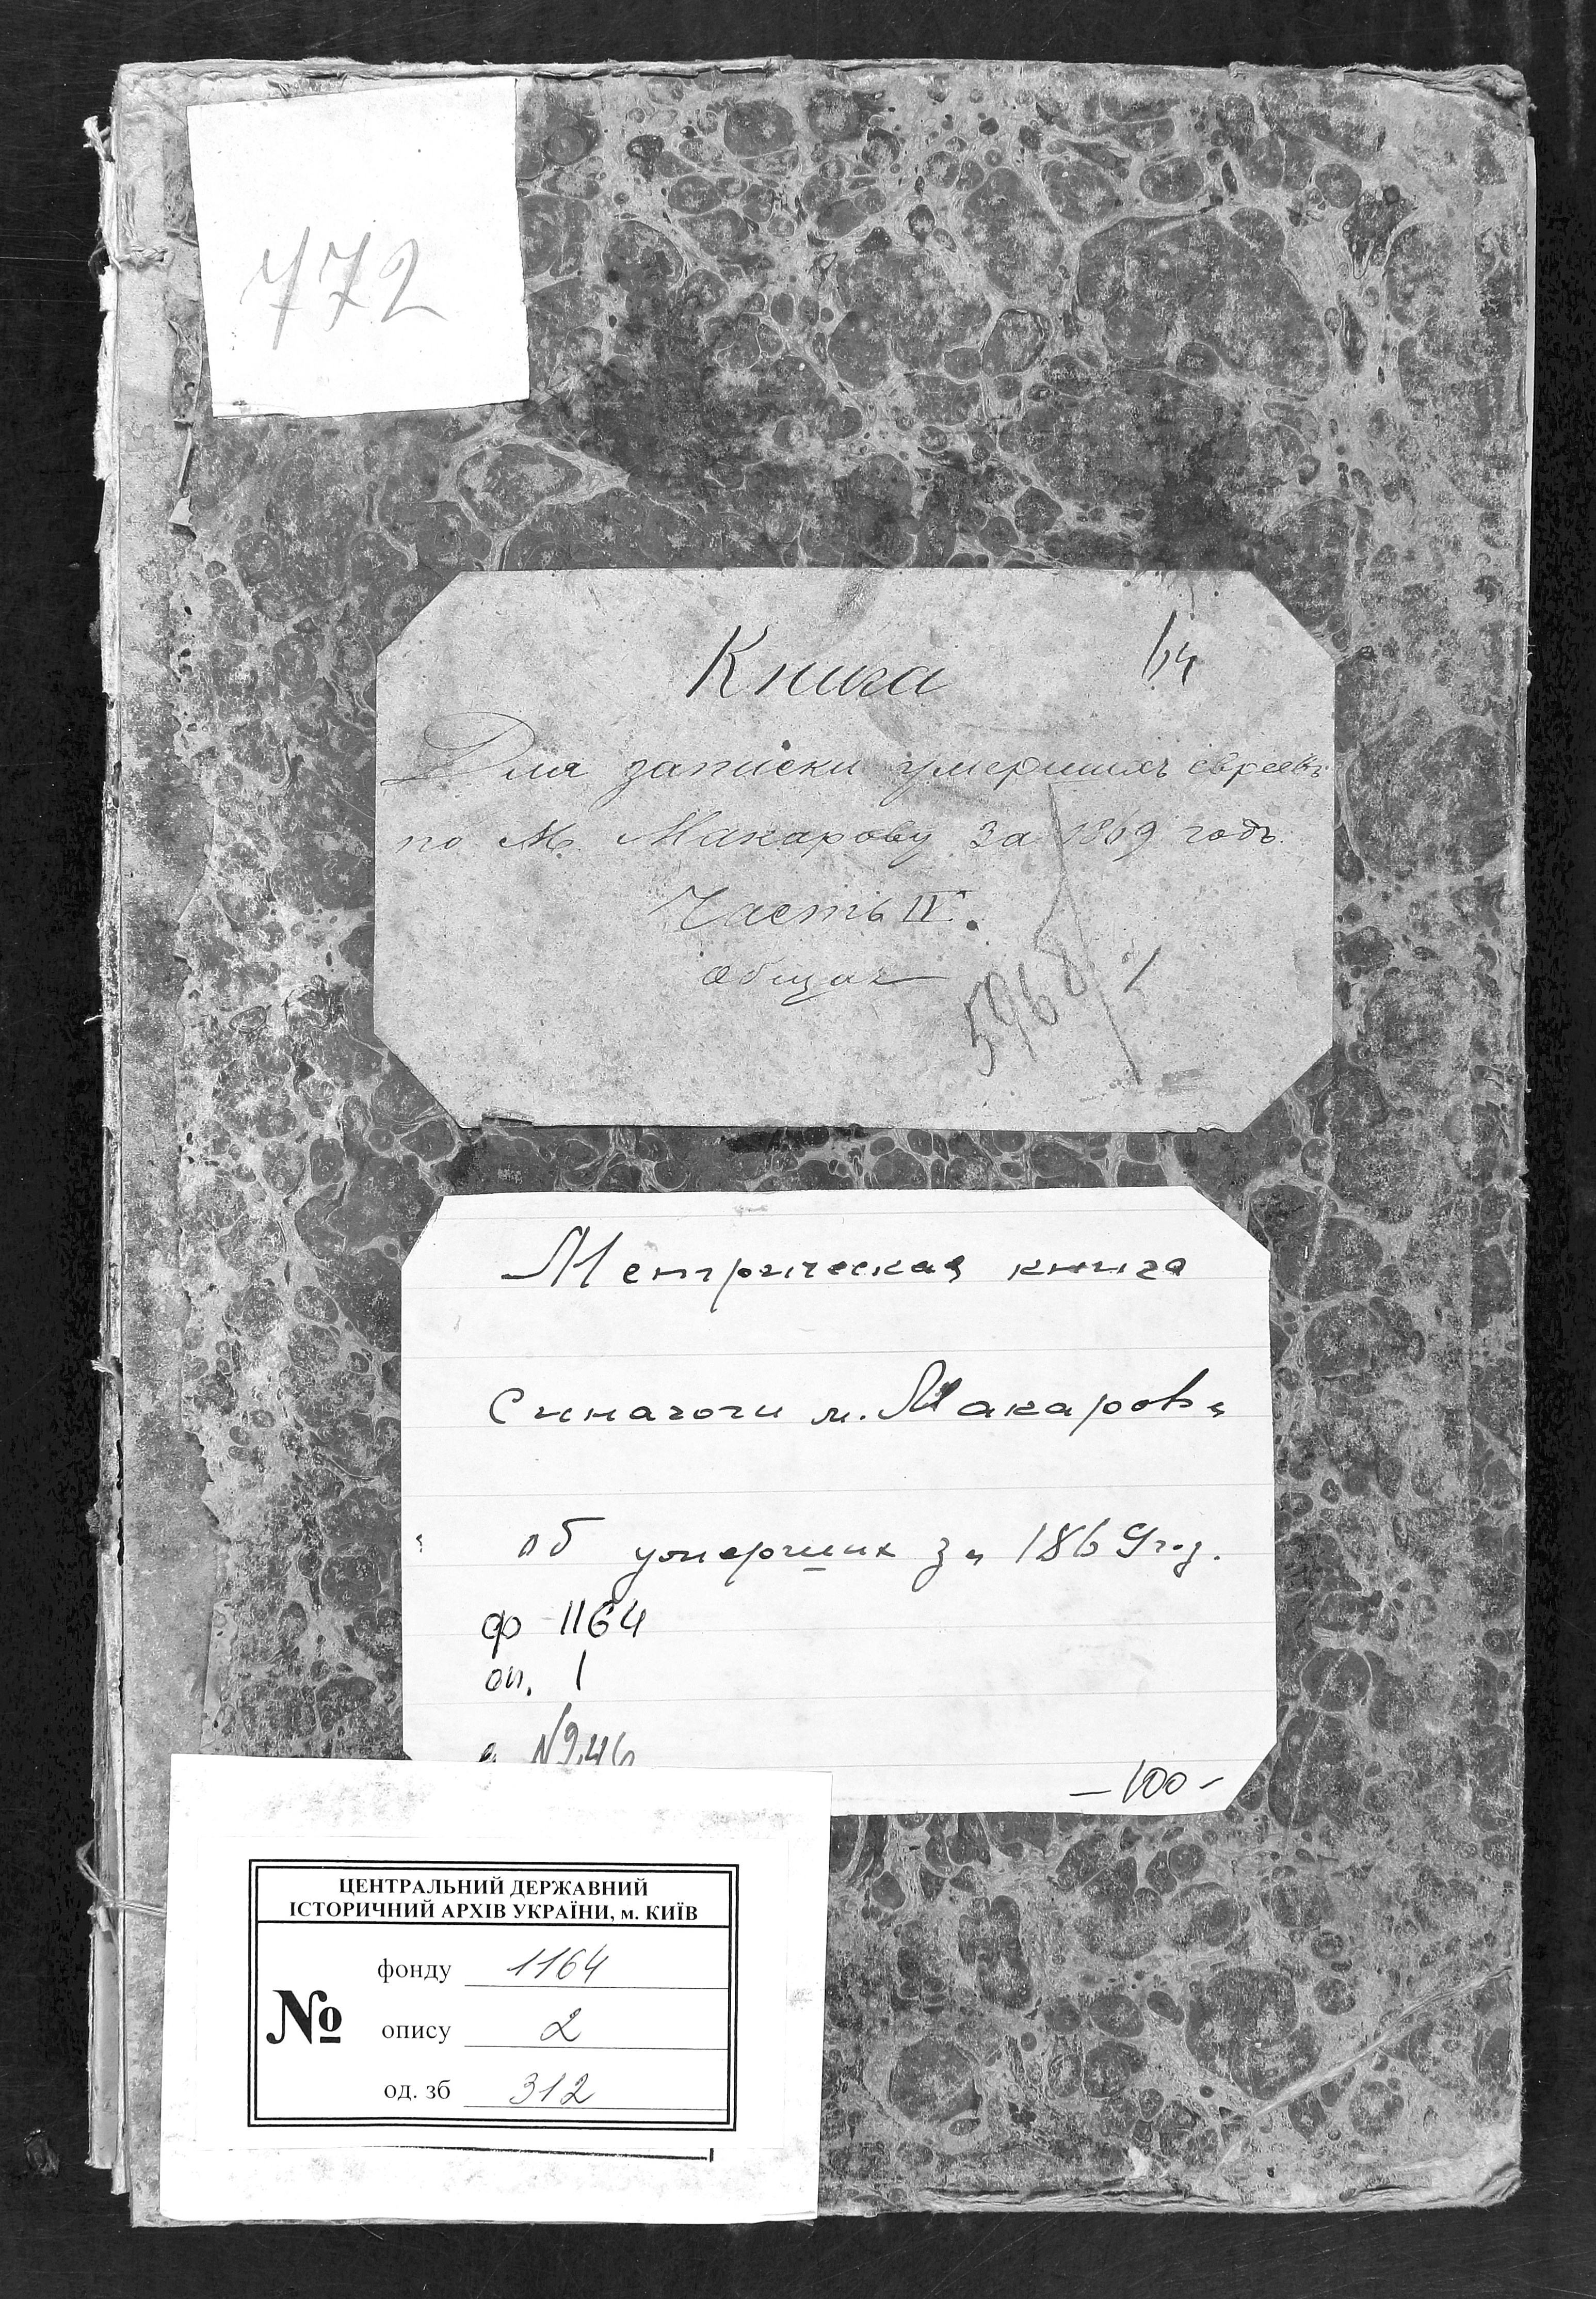 772
Книга
64
Для записки умершихъ евреевъ
по М. Макарову за 1869 годъ.
Часть IV.
общая
5968
Метрическая книга
Синагоги м. Макарова
об умерших за 1869 год.
ф 1164
оп. 1
№946
-100-
ЦЕНТРАЛЬНИЙ ДЕРЖАВНИЙ
ІСТОРИЧНИЙ АРХІВ УКРАЇНИ, м. КИЇВ
№
фонду 1164
опису 2
од. зб 312